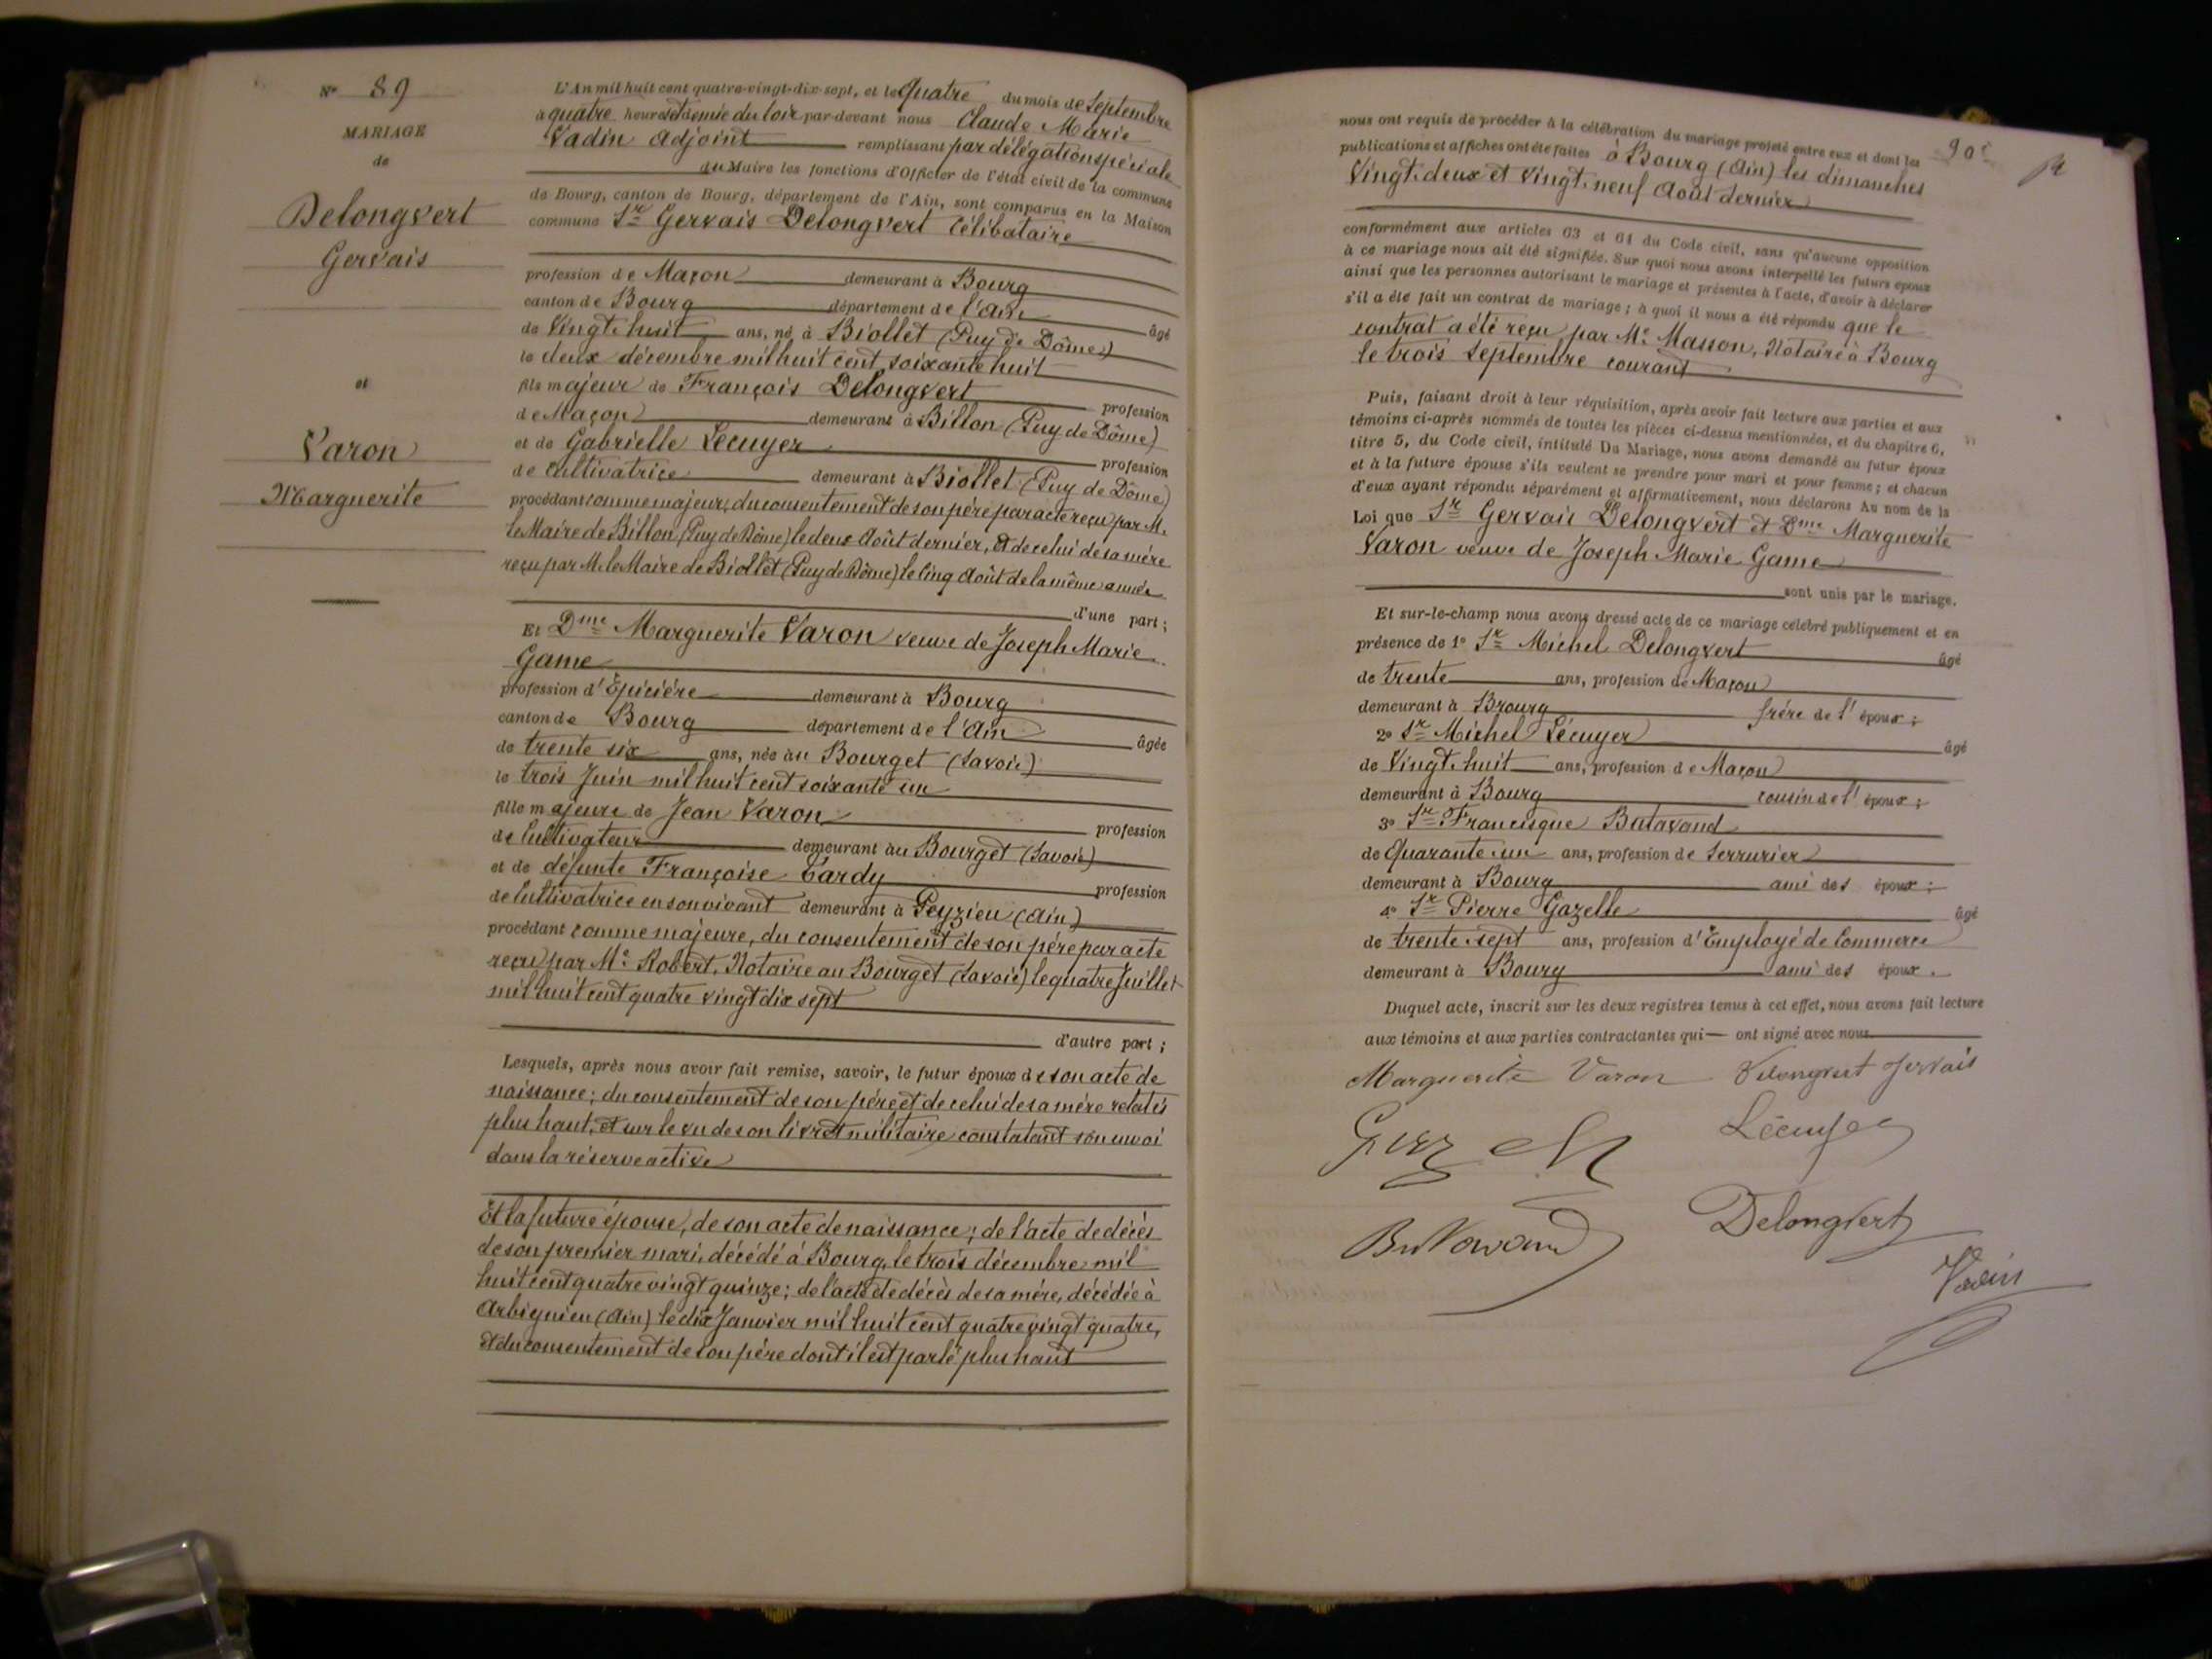 N° 89
MARIAGE
de
Delongvert
Gervais
et
Varon
Marguerite
L'An mil huit cent quatre-vingt-dix-sept, et le quatre du mois de Septembre
à quatre heures et demie du soir par-devant nous Claude Marie
Vadin adjoint remplissant par délégation spéciale
du Maire les fonctions d'Officier de l'état civil de la commune
de Bourg, canton de Bourg, département de l'Ain, sont comparus en la Maison
commune Sr Gervais Delongvert Célibataire
profession de Maçon demeurant à Bourg
canton de Bourg département de l'Ain âgé
de Vingt-huit ans, né à Biollet (Puy de Dôme)
le deux décembre mil huit cent soixante huit
fils majeur de François Delongvert profession
de Maçon demeurant à Billon (Puy de Dôme)
et de Gabrielle Lecuyer profession
de Cultivatrice demeurant à Biollet (Puy de Dôme)
procédant comme majeur, du consentement de son père par acte reçu par M.
le Maire de Billon (Puy de Dôme) le deux Août dernier, et de celui de sa mère
reçu par M. le Maire de Biollet (Puy de Dôme) le cinq Août de la même année
d'une part ;
Et Dme Marguerite Varon veuve de Joseph Marie
Game
profession d'Épicière demeurant à Bourg
canton de Bourg département de l'Ain âgée
de trente six ans, née au Bourget (Savoie)
le trois Juin mil huit cent soixante un
fille majeure de Jean Varon profession
de Cultivateur demeurant au Bourget (Savoie)
et de défunte Françoise Tardy profession
de Cultivatrice en son vivant demeurant à Peyzieu (Ain)
procédant comme majeure, du consentement de son père par acte
reçu par Me Robert, Notaire au Bourget (Savoie) le quatre Juillet
mil huit cent quatre vingt dix sept
d'autre part ;
Lesquels, après nous avoir fait remise, savoir, le futur époux de son acte de
naissance ; du consentement de son père et de celui de sa mère relatés
plus haut, et sur le vu de son livret militaire constatant son envoi
dans la réserve active
Et la future épouse, de son acte de naissance ; de l'acte de décès
de son premier mari, décédé à Bourg, le trois décembre mil
huit cent quatre vingt quinze ; de l'acte de décès de sa mère, décédée à
Arbignieu (Ain) le dix Janvier mil huit cent quatre vingt quatre,
et du consentement de son père dont il est parlé plus haut
90e
nous ont requis de procéder à la célébration du mariage projeté entre eux et dont les
publications et affiches ont été faites à Bourg (Ain) les dimanches
Vingt-deux et Vingt-neuf Août dernier
conformément aux articles 63 et 64 du Code civil, sans qu'aucune opposition
à ce mariage nous ait été signifiée. Sur quoi nous avons interpellé les futurs époux
ainsi que les personnes autorisant le mariage et présentes à l'acte, d'avoir à déclarer
s'il a été fait un contrat de mariage ; à quoi il nous a été répondu que le
contrat a été reçu par Me Masson, Notaire à Bourg
le trois Septembre courant
Puis, faisant droit à leur réquisition, après avoir fait lecture aux parties et aux
témoins ci-après nommés de toutes les pièces ci-dessus mentionnées, et du chapitre 6,
titre 5, du Code civil, intitulé Du Mariage, nous avons demandé au futur époux
et à la future épouse s'ils veulent se prendre pour mari et pour femme ; et chacun
d'eux ayant répondu séparément et affirmativement, nous déclarons Au nom de la
Loi que Sr Gervais Delongvert et Dme Marguerite
Varon veuve de Joseph Marie Game
sont unis par le mariage.
Et sur-le-champ nous avons dressé acte de ce mariage célébré publiquement et en
présence de 1° Sr Michel Delongvert âgé
de trente ans, profession de Maçon
demeurant à Brourg frère de l'époux ;
2° Sr Michel Lécuyer âgé
de Vingt-huit ans, profession de Maçon
demeurant à Bourg cousin de l'époux ;
3° Sr Francisque Butavand
de Quarante-un ans, profession de Serrurier
demeurant à Bourg ami des époux ;
4° Sr Pierre Gazelle âgé
de trente-sept ans, profession d'Employé de Commerce
demeurant à Bourg ami des époux.
Duquel acte, inscrit sur les deux registres tenus à cet effet, nous avons fait lecture
aux témoins et aux parties contractantes qui — ont signé avec nous.
Marguerite Varon Delongvert Gervais
Lécuyer
Butavand Delongvert
Vadin